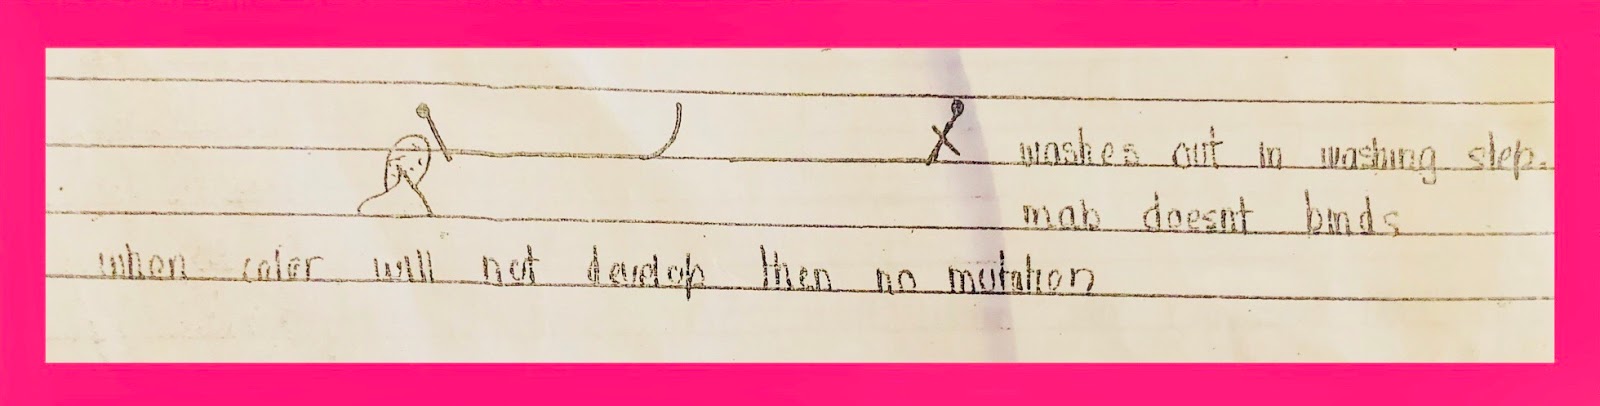 washes out in washing step.
mab doesnt binds
when color will not develop then no mutation